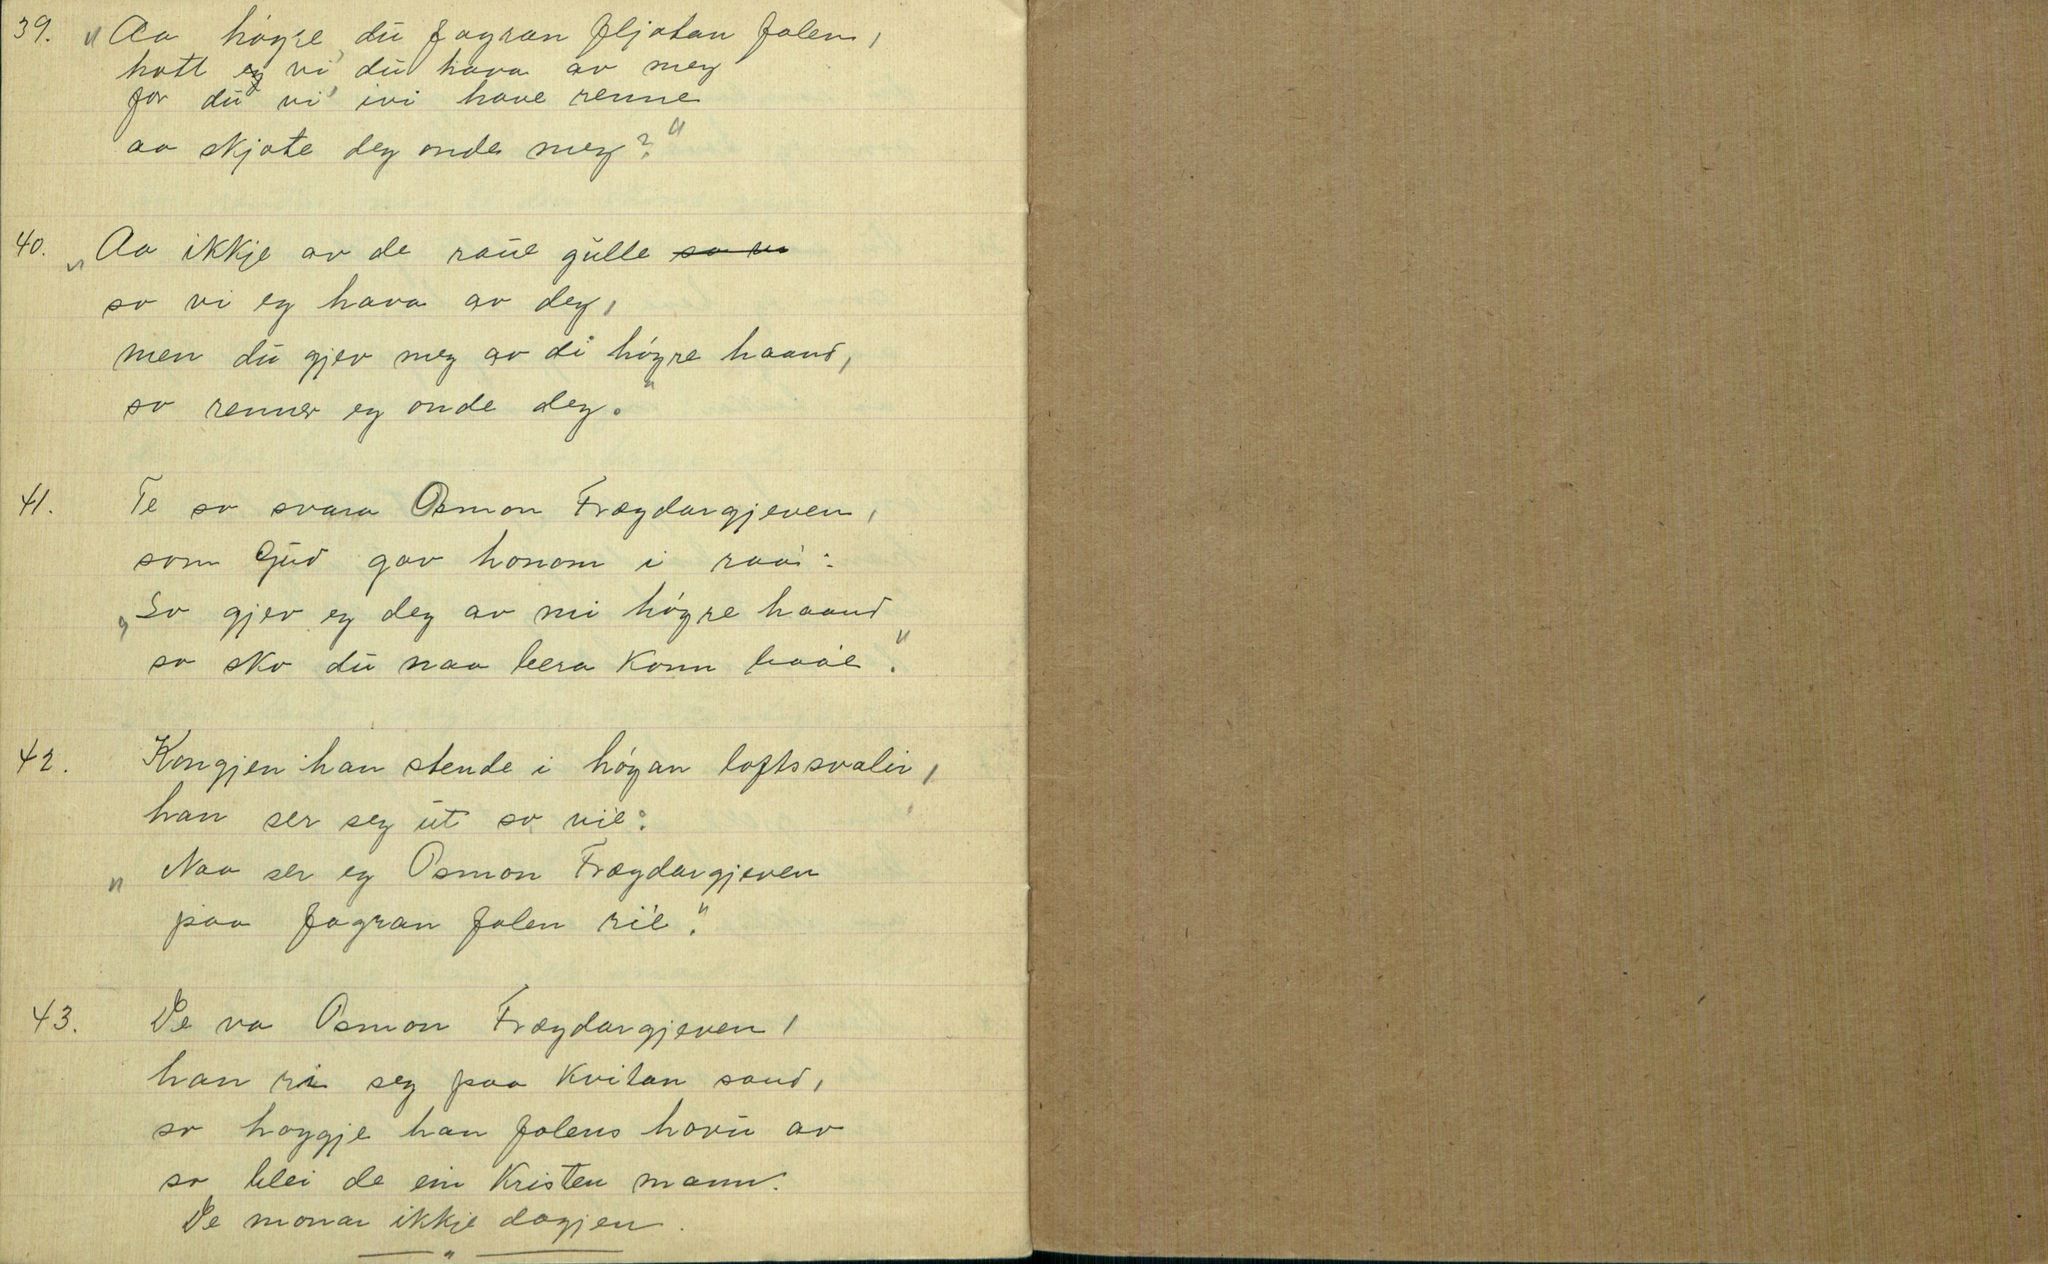 39. "Aa høgre du fagran fljotan folen,
hott eg vi' du hava av meg
for du vi' ivi have renne
aa skjote deg onde meg?"
40. "Aa ikkje av de raue gulle so vi
so vi eg hava av deg,
men du gjev meg av di høgre haand,
so renner eg onde deg."
41. Te so svara Osmon Frægdargjeven,
som Gud gav honom i raa:
"So gjev eg deg av mi høgre haand
so sko du naa bera konn baae."
42. Kongjen han stende i høgan loftssvalir,
han ser seg ut so vie:
"Naa ser eg Osmon Frægdargjeven
paa fagran folen rie."
43. De va Osmon Frægdargjeven,
han ri seg paa kvitan sand,
so hoggje han folens hovu av
so blei de ein kristen mann.
De monar ikkje dagjen.